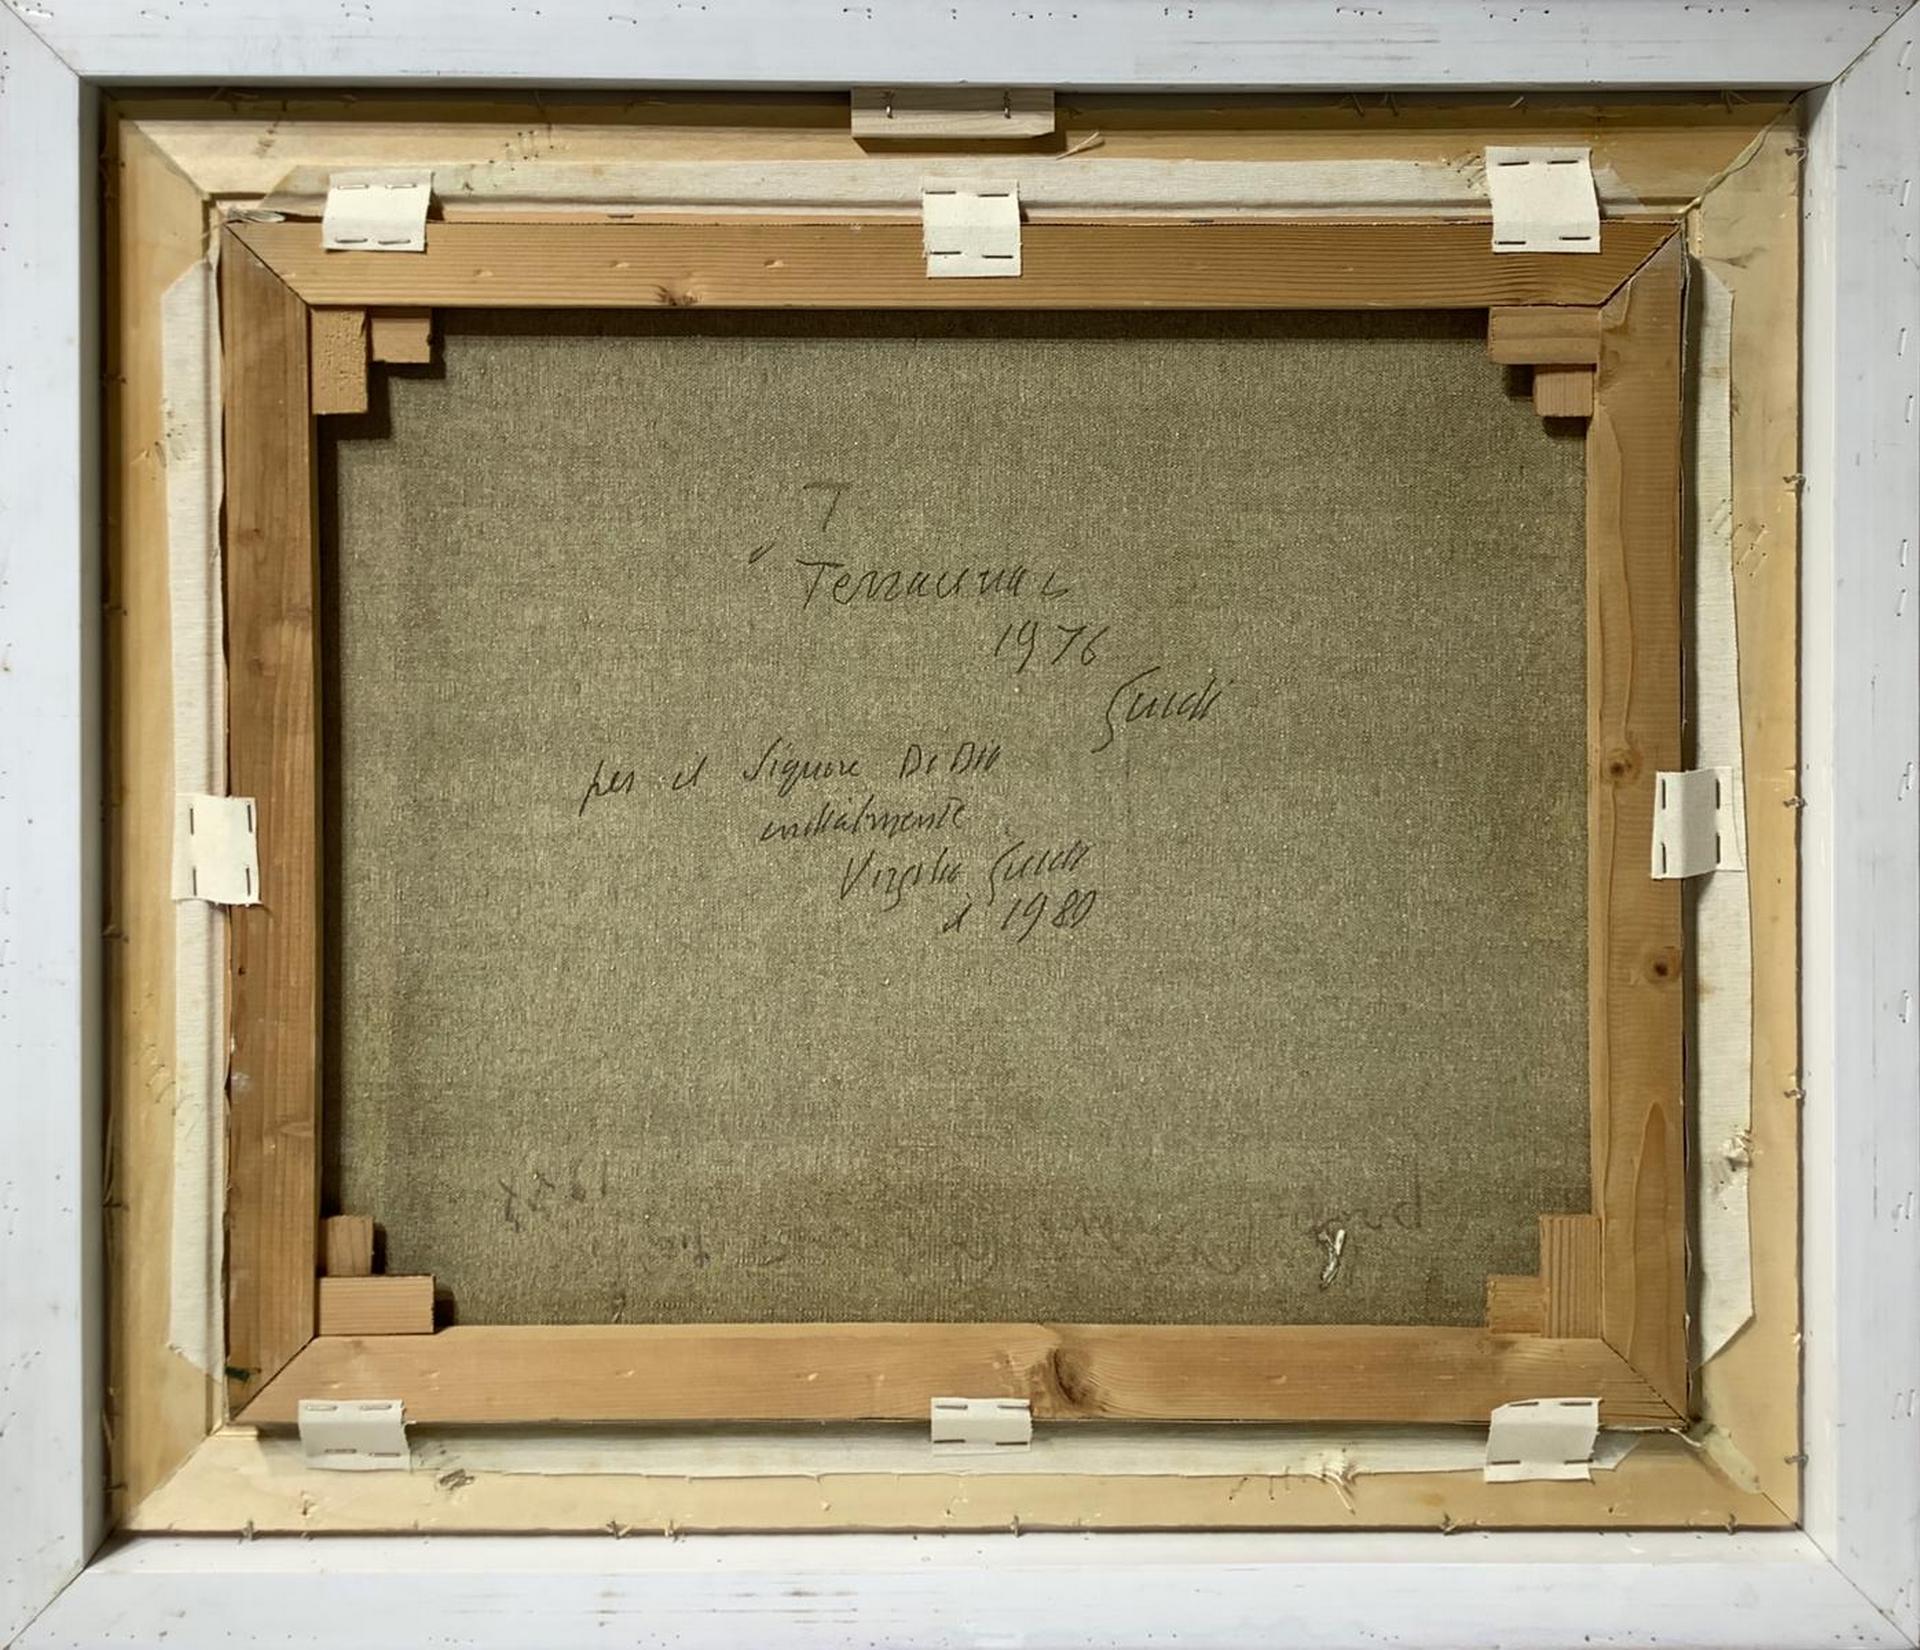 T
" Terracina "
1976
Guidi
per il Signore De Dio
cordialmente
Virgilio Guidi
è 1980